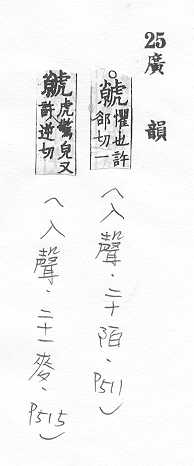 25
廣韻
○虩懼也許
郤切一
︿入聲．二十陌．P511﹀
虩虎驚皃又
許逆切
︿入聲．二十一麥．P515﹀